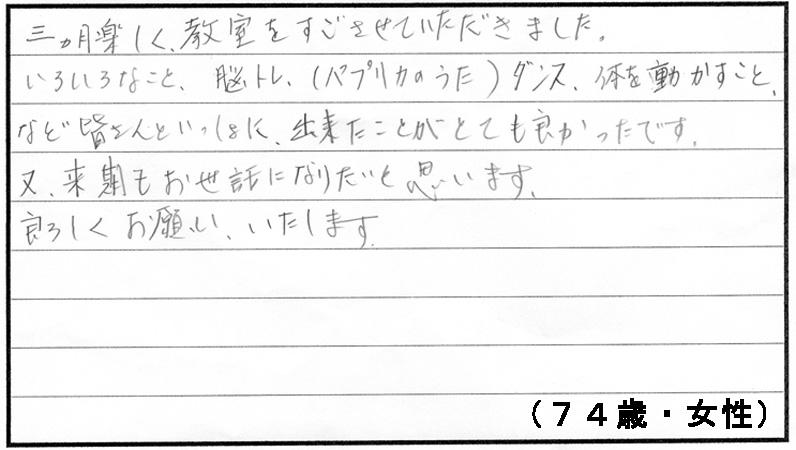 三ヵ月楽しく、教室をすごさせていただきました。
いろいろなこと、脳トレ、(パプリカのうた)ダンス、体を動かすこと、
など皆さんといっしょに、出来たことがとても良かったです。
又、来期もお世話になりたいと思います。
良ろしくお願い、いたします。
(74歳・女性)